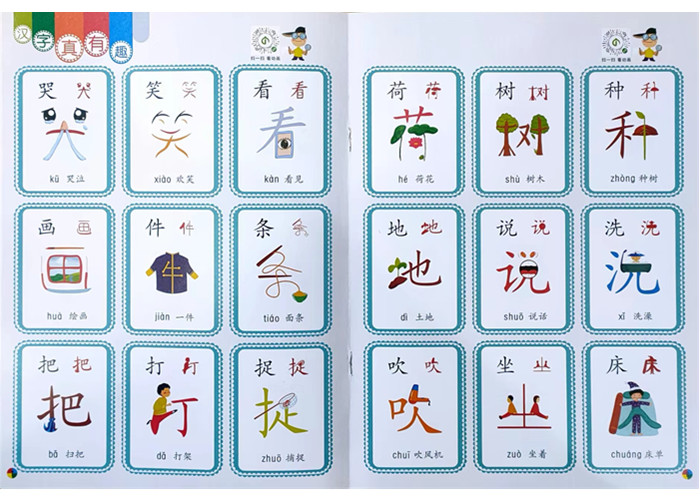 汉字真有趣
扫一扫 看动画
扫一扫 看动画
哭 哭
kū 哭泣
笑 笑
xiào 欢笑
看 看
看
kàn 看见
画 画
huà 绘画
件 件
牛
jiàn 一件
条 条
条
tiáo 面条
把 把
把
bǎ 扫把
打 打
打
dǎ 打架
捉 捉
捉
zhuō 捕捉
荷 荷
荷
hé 荷花
树 树
树
shù 树木
种 种
种
zhòng 种树
地 地
地
dì 土地
说 说
说
shuō 说话
洗 洗
洗
xǐ 洗澡
吹 吹
吹
chuī 吹风机
坐 坐
坐
zuò 坐着
床 床
chuáng 床单